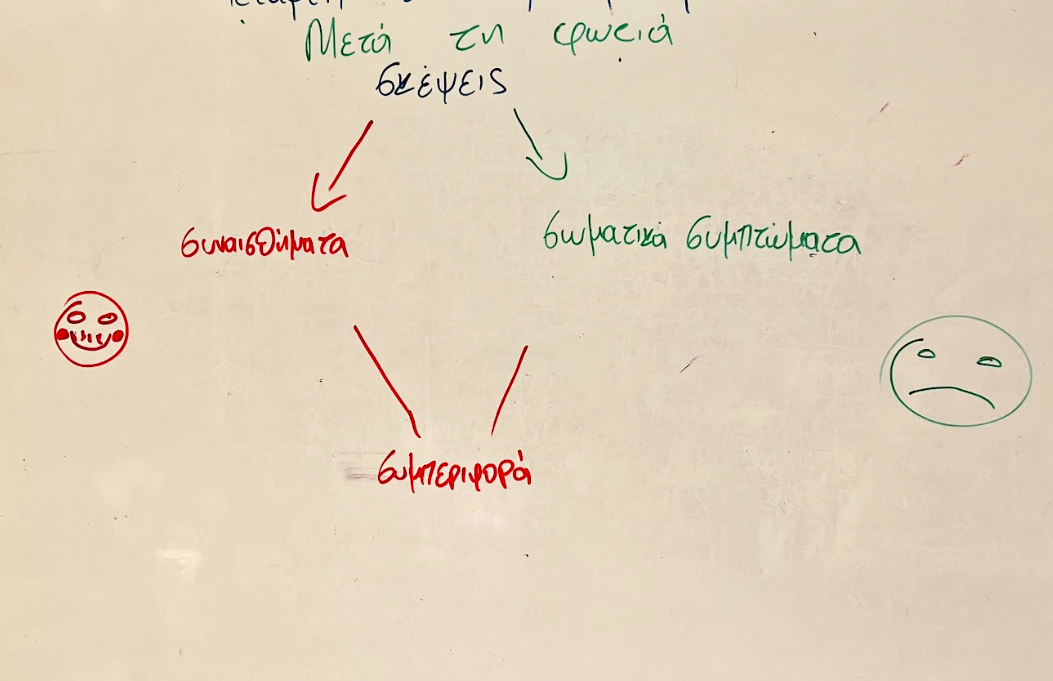 Μετά τη φωτιά
σκέψεις
συναισθήματα
σωματικά συμπτώματα
συμπεριφορά